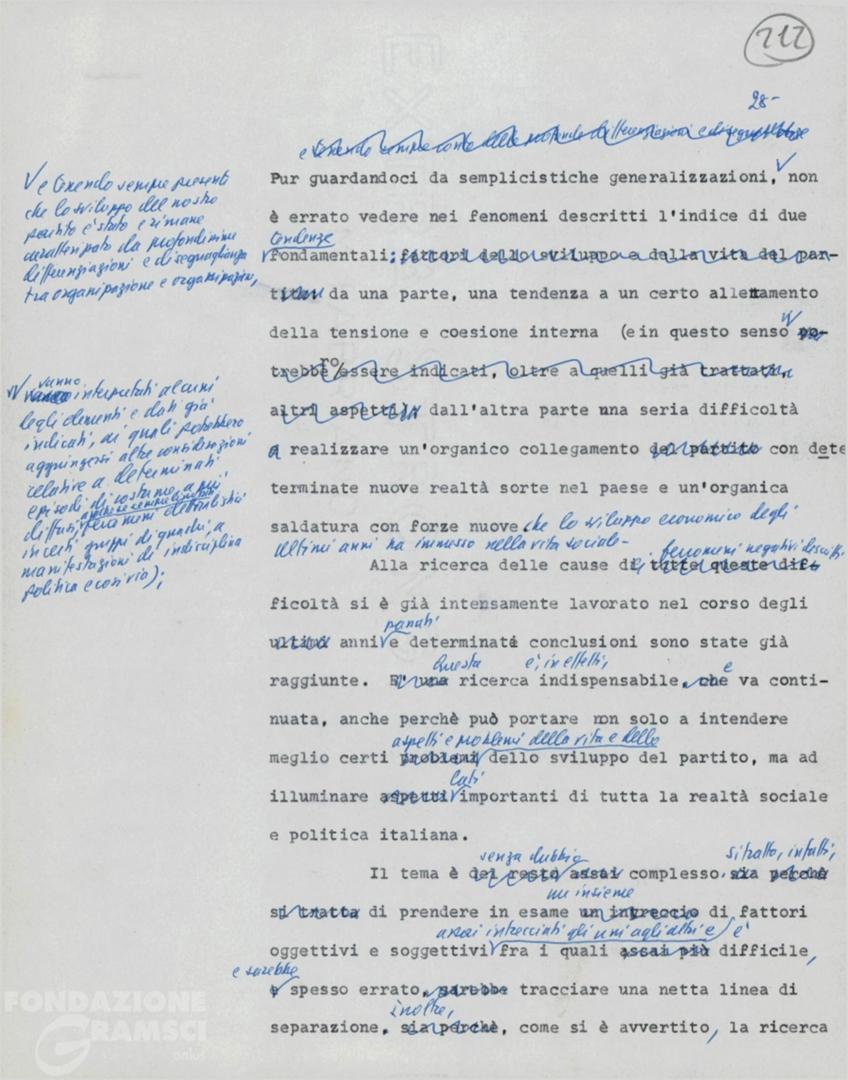 212
28-
e tenendo sempre conto delle profonde differenziazioni e diseguaglianze
V e tenendo sempre presenti
che lo sviluppo del nostro
partito è stato e rimane
caratterizzato da profondissime
differenziazioni e diseguaglianze
tra organizzazione e organizzazione,
Pur guardandoci da semplicistiche generalizzazioni, V non
è errato vedere nei fenomeni descritti l'indice di due
tendenze
fondamentali: fattori dello sviluppo e della vita del par-
tito: da una parte, una tendenza a un certo allentamento
della tensione e coesione interna (e in questo senso po-
trebbero essere indicati, oltre a quelli già trattati,
altri aspetti); dall'altra parte una seria difficoltà
a realizzare un'organico collegamento del partito con dete
terminate nuove realtà sorte nel paese e un'organica
saldatura con forze nuove che lo sviluppo economico degli
ultimi anni ha immesso nella vita sociale-
vanno interpretati alcuni
degli elementi e dati già
indicati, ai quali potrebbero
aggiungersi altre considerazioni
relative a determinati
episodi di costume
diffusi, fenomeni
in certi gruppi di quadri, a
manifestazioni di indisciplina
politica e così via);
fenomeni negativi descritti
Alla ricerca delle cause di tutte queste dif-
ficoltà si è già intensamente lavorato nel corso degli
passati
ultimi anni e determinate conclusioni sono state già
Questa è, in effetti,
raggiunte. E' una ricerca indispensabile, che e va conti-
nuata, anche perchè può portare non solo a intendere
aspetti e problemi della vita e dello
meglio certi problemi dello sviluppo del partito, ma ad
lati
illuminare aspetti importanti di tutta la realtà sociale
e politica italiana.
senza dubbio si tratta, infatti,
Il tema è del resto assai complesso, sia perchè
un insieme
si tratta di prendere in esame un intreccio di fattori
assai intrecciati gli uni agli altri e è
oggettivi e soggettivi fra i quali assai più difficile,
e sarebbe
e spesso errato, sarebbe tracciare una netta linea di
inoltre,
separazione, sia perchè, come si è avvertito, la ricerca
FONDAZIONE
GRAMSCI
onlus